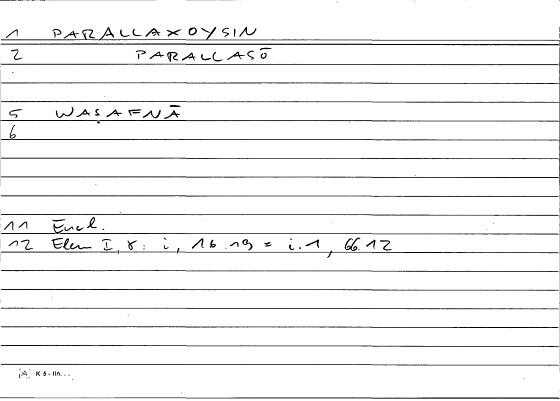 1 PARALLAXOYSIN
2 PARALLASŌ
5 WAṢAFNĀ
6
11 Eucl.
12 Elem I, γ: i, 16.19 = i.1, 66.12